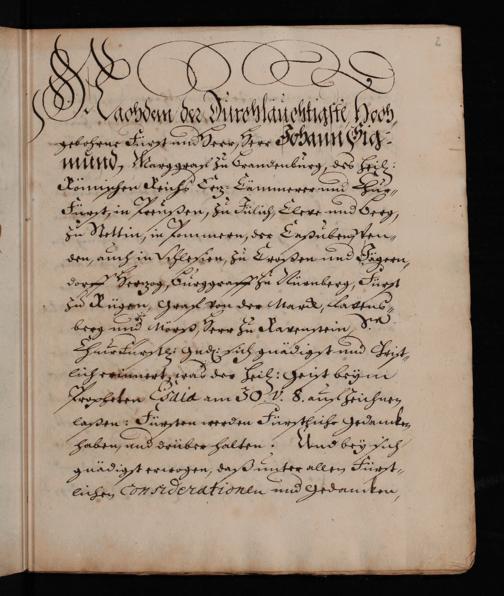 2
Nachdem der Durchläuchtigste Hoch-
gebohrne Fürst und Herr, Herr Johann Sig-
mund, Marggraf zu Brandenburg, des Heil:
Römischen Reichs Ertz-Cämmerer und Chur-
Fürst, in Preußen, zu Jülich, Cleve und Berg,
zu Stettin, in Pommern, der Caßuben, Wen-
den, auch in Schlesien, zu Croßen und Jägern-
dorff Herzog, Burggraff zu Nürnberg, Fürst
zu Rügen, Graf von der Marck, Ravens-
berg und Mörß, Herr zu Ravenstein, Se
Churfürstl: Gnd: sich gnädigst und Christ-
lich erinnert, was der Heil: Geist beym
Propheten Esaia am 30. V. 8. aufzeichnen
laßen: Fürsten werden Fürstliche Gedancken
haben, und darüber halten. Und bey sich
gnädigst erwogen, daß unter allen Fürst-
lichen Considerationen und Gedancken,